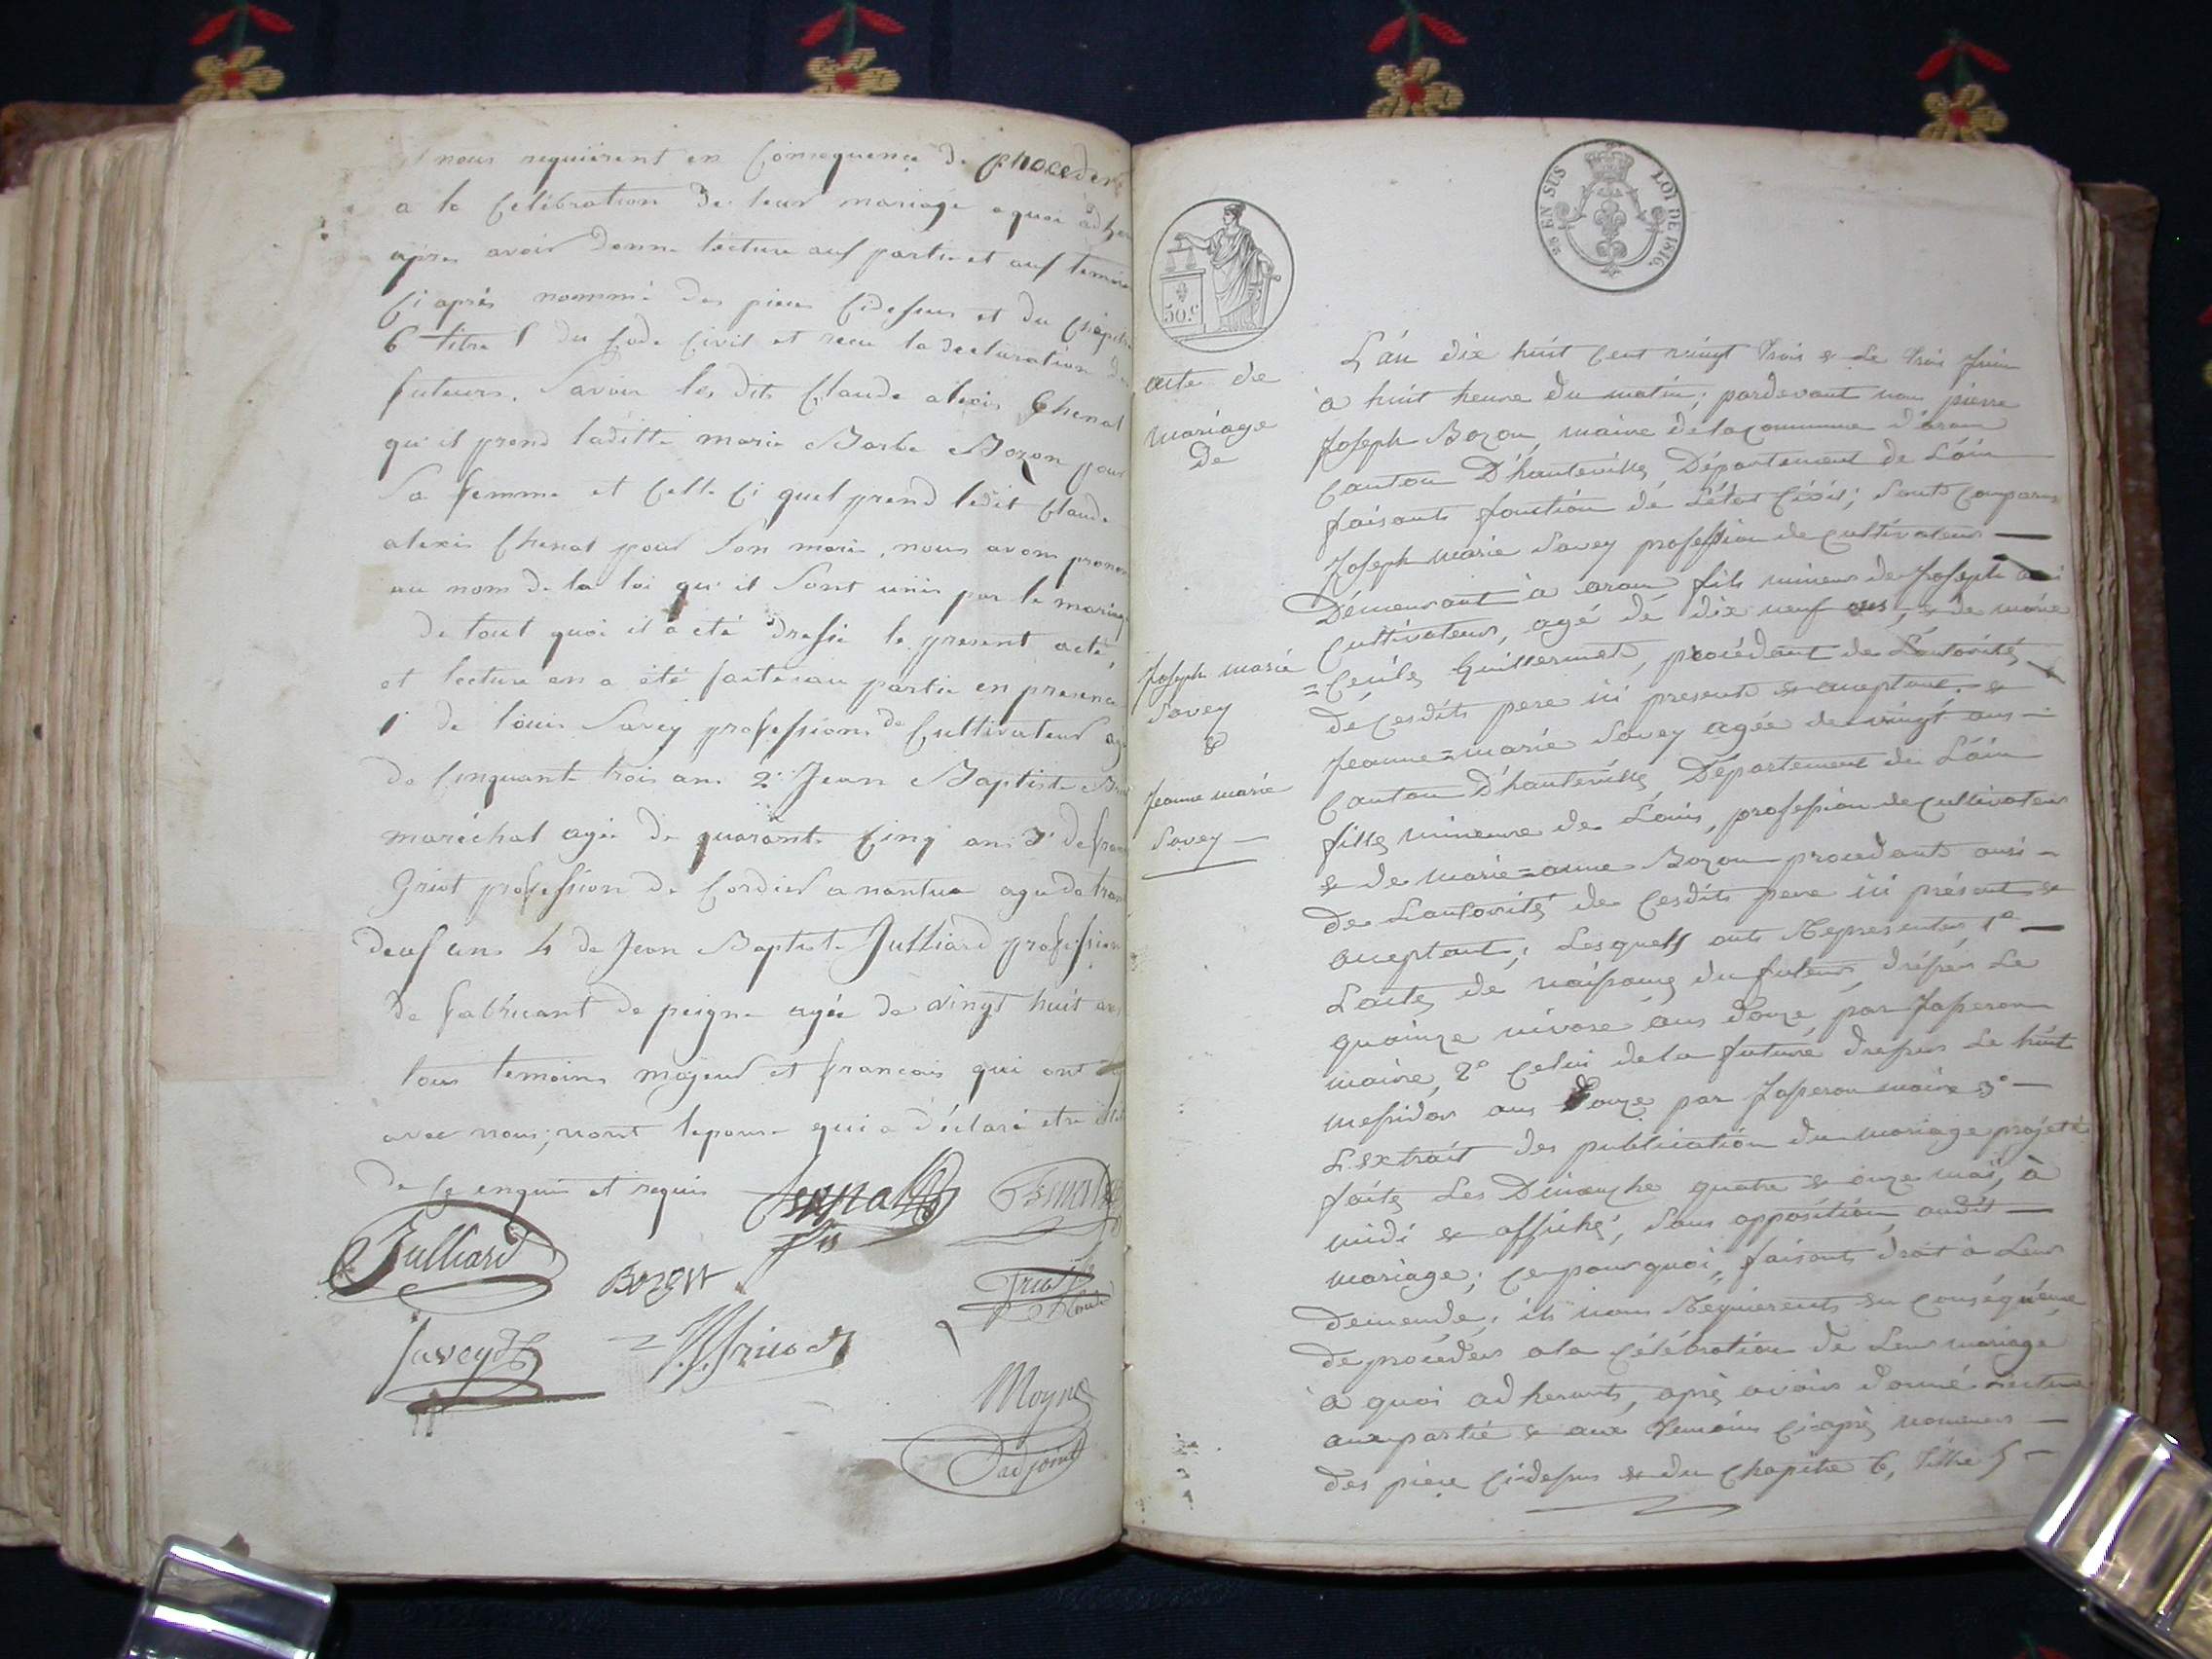 nous requiérent en Consequence de procéder
a la Celébration de leur mariage a quoi adh
apres avoir donne lecture aux partie et aux temoin
Ci après nommé des pieces Cidessus et du Chapitre
6 titre 5 du Code Civil et recu la declaration de
futeurs. Savoir les dits Claude alexis Chenal
qu'il prend laditte marie Barbe Bozon pour
Sa femme et Celle Ci quel prend ledit Claude
alexis Chenal pour Son mari, nous avons pronon
au nom de la loi qu'il Sont unis par le mariag
de tout quoi il a été dressé le present acte,
et lecture en a été faite au partie en presence
1° de louis Savey professions de Cultivateur ag
de Cinquante trois ans 2° Jean Baptiste
maréchal agée de quarante Cinq ans 3° de fran
Griot profession de Cordier a nantua agé de tran
deux ans 4 de Jean Baptiste Julliard profession
de fabricant de peigne agée de vingt huit ans
tous temoins majeur et francais qui ont
avec nous, nont lepouse qui a déclaré etre
de ce enquis et requis
Julliard
Bozon
Savey
Moyne
adjoint
S EN SUS LOI DE 1816.
50.c
acte de
mariage
de
Joseph marie
Savey
&
Jeanne marie
Savey
L'án dix huit Cent vingt trois & Le trois Juin
à huit heure du matin, pardevant nous pierre
Joseph Bozon, maire de la commune d'aran
Canton D'hauteville, Département de L'áin
faisants fonction de L'état Civil; Sonts Comparus
Joseph marie Savey profession de Cultivateur
Démeurant à aran fils mineur de Joseph
Cultivateur, agé de dix neuf ans, & de marie
=Cécile Guillermet, procédant de L'autorité
de Cesdits pere ici present & acceptant. &
Jeanne=marie Savey agée de vingt ans
Canton D'hauteville Département de L'áin
fille mineure de Louis, profession de Cultivateur
& de marie=anne Bozon procedants ausi
de L'autorité de Cesdits pere ici présent &
acceptant; Lesquels onts Représentés 1°
L'acte de naissance du futeur, dréssés Le
quainze nivose ans douze, par Jasseron
maire, 2° Celui de la future dressés Le huit
messidor ans Douze par Jasseron maire 3°
L'extrait des publication du mariage projeté
faite Les Dimanche quatre & onze mai, à
midi & affiché, Sans opposition audit
mariage; Ce pourquoi, faisants droit à Leur
demende, ils nous Requierents en Conséquence
de procéder a la Célébration de Leur mariage
à quoi adherants, après avoir donné lecture
aux partie & aux temoins Ci-après nommers
des pièce Cidessus & du Chapitre 6, titre 5